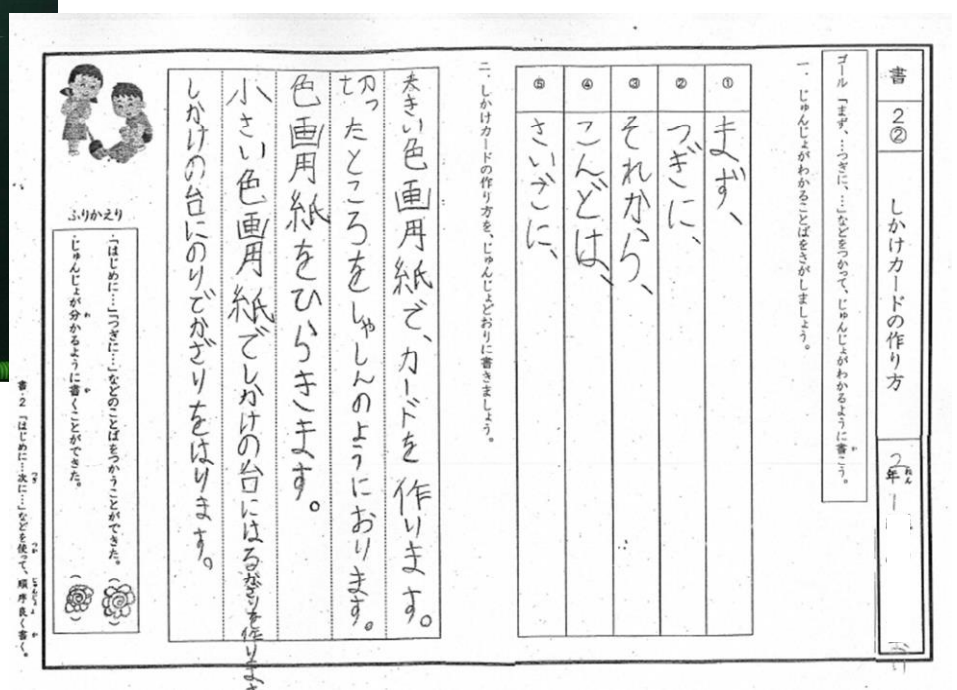 書
2②
しかけカードの作り方
2年
ゴール 「まず、…つぎに、…」などをつかって、じゅんじょがわかるように書こう。
一、じゅんじょがわかることばをさがしましょう。
① まず、
② つぎに、
③ それから、
④ こんどは、
⑤ さいごに、
二、しかけカードの作り方を、じゅんじょどおりに書きましょう。
大きい色画用紙で、カードを作ります。
切ったところをしゃしんのようにおります。
色画用紙をひらきます。
小さい色画用紙でしかけの台にはるかざりを作りま
しかけの台にのりでかざりをはります。
ふりかえり
・「はじめに…」「つぎに…」などのことばをつかうことができた。
・じゅんじょが分かるように書くことができた。
書-2 「はじめに…次に…」などを使って、順序良く書く。